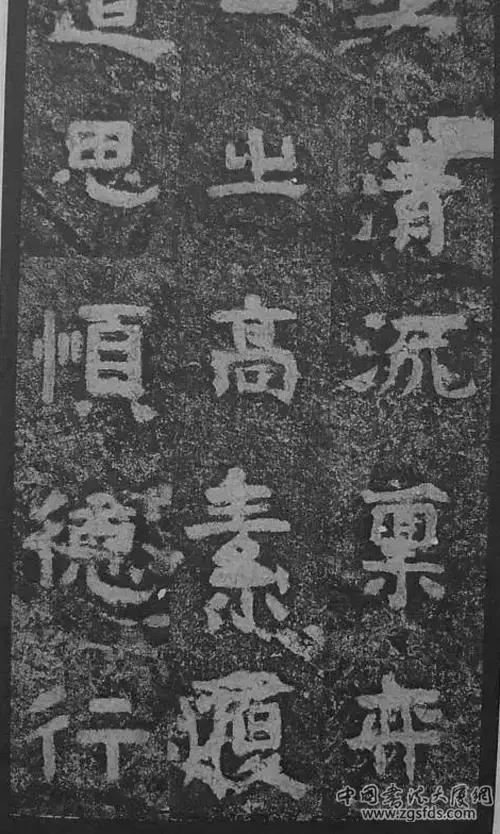 清流稟弈
之高素履
道思順德行
中国書法大厦網
www.zgsfds.com